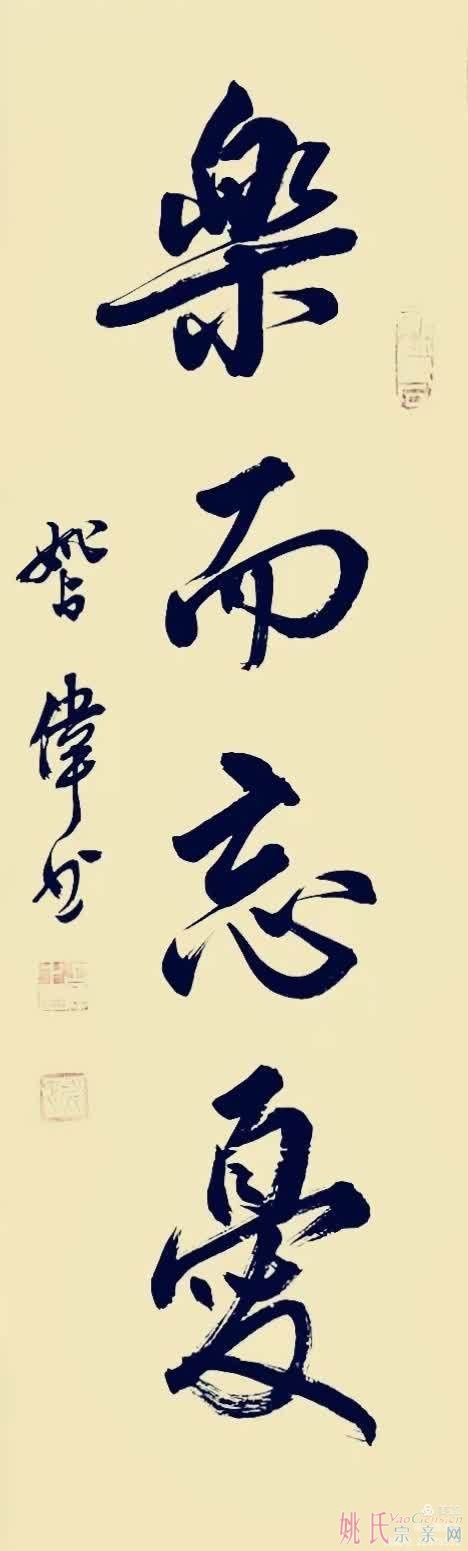 樂而忘憂
姚占偉书
姚氏宗亲网
YaoGens.cn